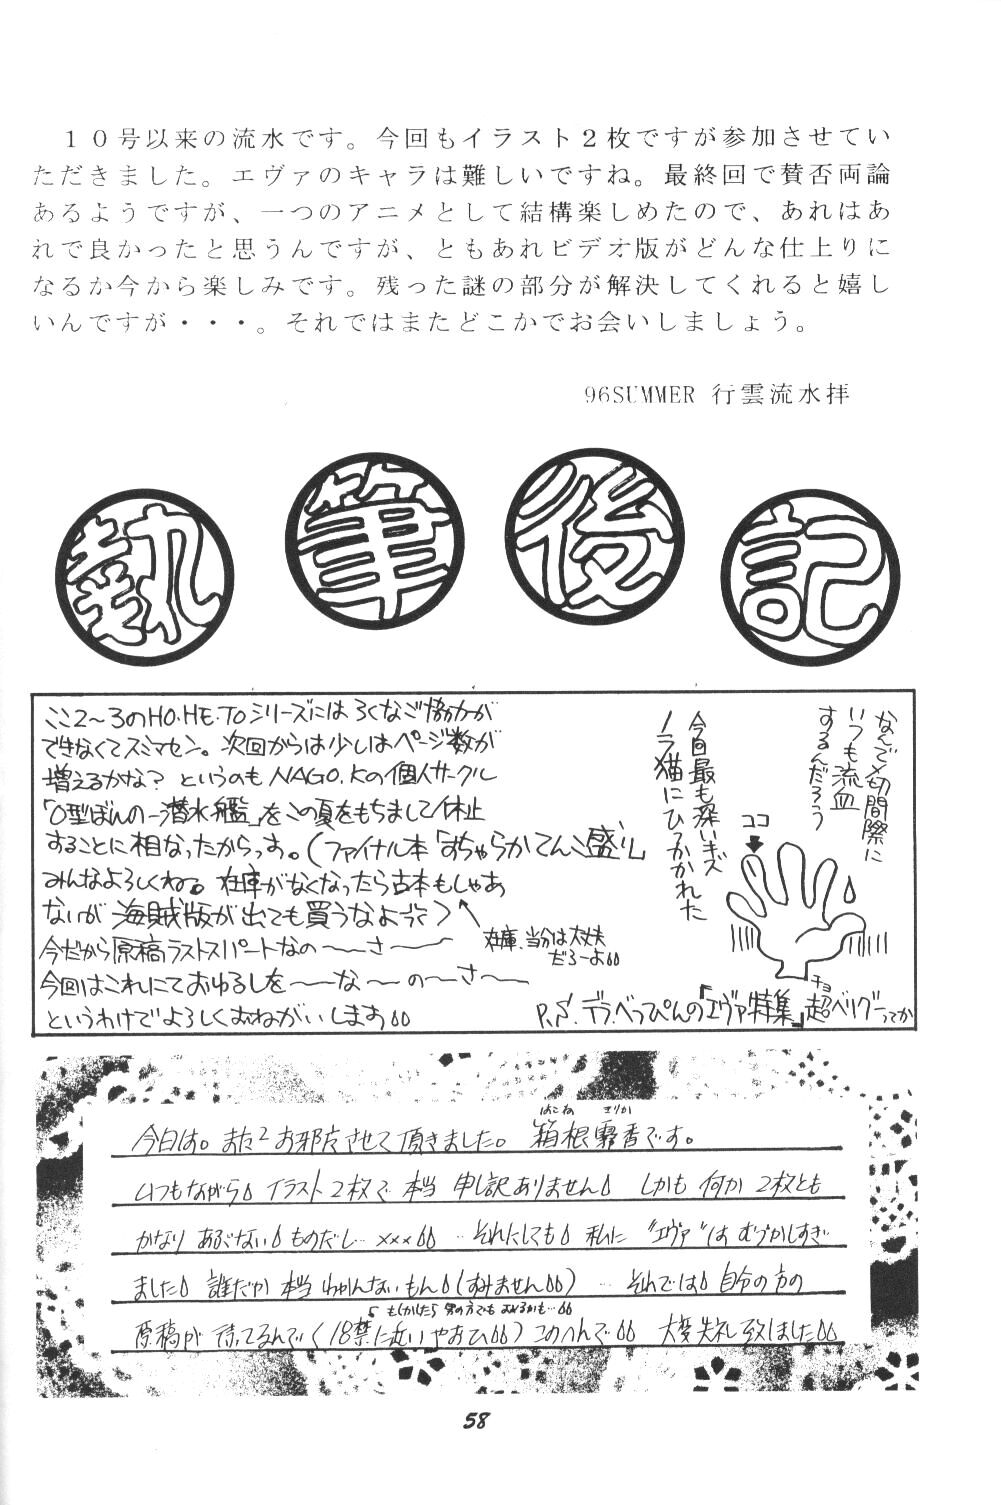 １０号以来の流水です。今回もイラスト２枚ですが参加させてい
ただきました。エヴァのキャラは難しいですね。最終回で賛否両論
あるようですが、一つのアニメとして結構楽しめたので、あれはあ
れで良かったと思うんですが、ともあれビデオ版がどんな仕上りに
なるか今から楽しみです。残った謎の部分が解決してくれると嬉し
いんですが・・・。それではまたどこかでお会いしましょう。
96SUMMER 行雲流水拝
執筆後記
ここ2〜3のHO・HE・TOシリーズにはろくなご協力が
できなくてスミマセン。次回からは少しはページ数が
増えるかな? というのもNAGO.Kの個人サークル
「O型ぼんの一潜水艦」をこの夏をもちまして休止
することに相なったからっす。(ファイナル本「おちゃらかてんこ盛り」
みんなよろしくね。在庫がなくなったら古本もしゃあ
ないが海賊版が出ても買うなよ
在庫、当分は大丈夫
だろーよ
今だから原稿ラストスパートなの〜〜さ〜〜
今回はこれにておゆるしを〜〜な〜〜の〜さ〜
というわけでよろしくおねがいします
なんで〆切間際に
いつも流血
するんだろう
今回最も深いキズ
ノラ猫にひっかかれた
ココ
P.S.デラべっぴんの「エヴァ特集」超ベリグーってか
チョ
はこね えりか
今日は。また2お邪魔させて頂きました。箱根 香です。
いつもながらイラスト2枚で本当 申し訳ありません しかも 何か 2枚とも
かなり あぶない ものだし…×××…それにしても 私に "エヴァ"は むづかしすぎ
ました 誰だか 本当 わかんないもん(すみません)…それでは 自分の方の
もしかしたら 男の方でも おくるかも…
原稿が 待ってるんで(18禁に近いやおひ)このへんで 大変失礼致しました
58